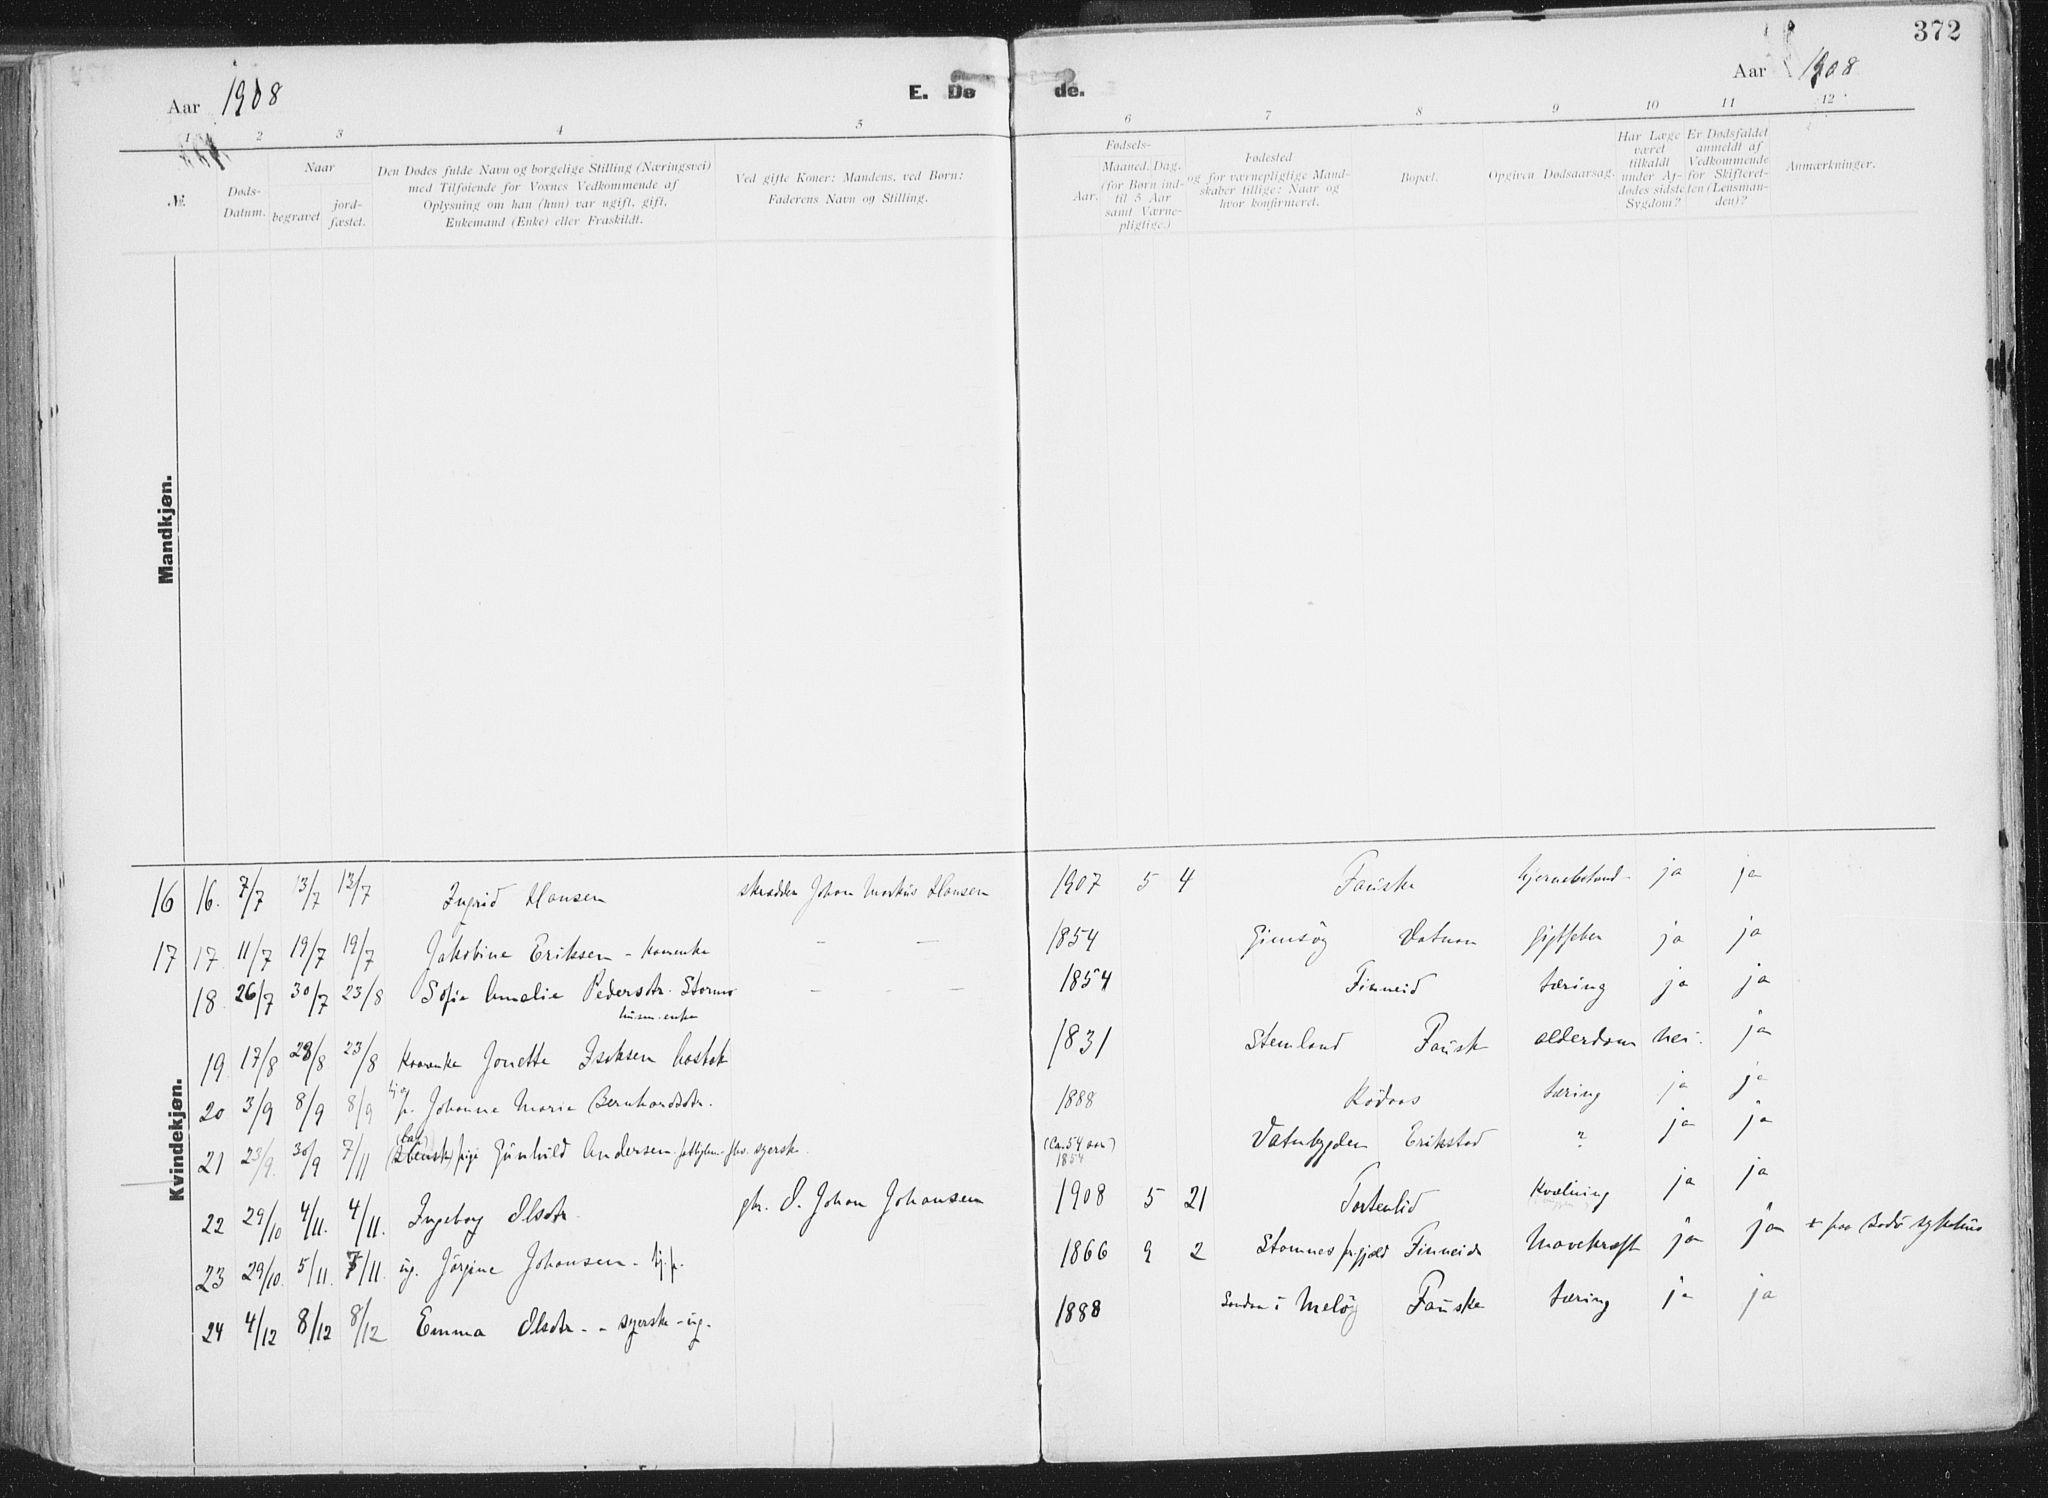 372
Aar 1908
E. Dø de.
Aar 1908
1 2 3 4 5 6 7 8 9 10 11 12
№.
Døds-Datum.
Naar
begravet
jord-fæstet.
Den Dødes fulde Navn og borgelige Stilling (Næringsvei)
med Tilføiende for Voxnes Vedkommende af
Oplysning om han (hun) var ugift, gift,
Enkemand (Enke) eller Fraskildt.
Ved gifte Koner: Mandens, ved Børn:
Faderens Navn og Stilling.
Fødsels-
Aar.
Maaned. Dag.
(for Børn ind-
til 5 Aar
samt Værne-
pligtige.)
Fødested
og for værnepligtige Mand-
skaber tillige: Naar og
hvor konfirmeret.
Bopæl.
Opgiven Dødsaarsag.
Har Læge
været
tilkaldt
under Af-
dødes sidste
Sygdom?
Er Dødsfaldet
anmeldt af
Vedkommende
for Skifteret-
ten (Lensman-
den)?
Anmærkninger.
Mandkjøn.
Kvindekjøn.
16 16. 7/7 13/7 13/7 Ingrid Hansen skrædder Johan Markus Hansen 1907 5 4 Fauske ja ja
17 17. 11/7 19/7 19/7 Jakobine Eriksen - - - 1854 Gimsøy Vatnan Gigtfeber ja ja
18. 26/7 30/7 23/8 Sofie Amalie Pedersdtr. Stormo - - - 1854 Finneid tæring ja ja
husm. enke
19. 17/8 28/8 23/8 Jonette Isaksen 1831 Stemland Fausk alderdom nei. ja
20 3/9 8/9 8/9 Johanne Marie Bernhardsdtr. 1888 Rödaas tæring ja ja
21 23/9. 30/9 7/11 pige Gunhild Andersen syersk. (Ca. 54 aar) Vatnbygden Erikstad ? ja ja
1854
22 29/10 4/11. 4/11. Ingeborg Olsdtr. Johan Johansen 1908 5 21 Tortenlid Kvælning ja ja
23 29/10. 5/11. 7/11. ug. Jörgine Johansen - tj.p. 1866 9 2 Stamnes prgjæld Finneid Mavekræft ja ja + paa Bodø sykehus
24 4/12 8/12 8/12 Emma Olsdtr. - syersk - ug. 1888 i Meløy Fauske tæring ja ja